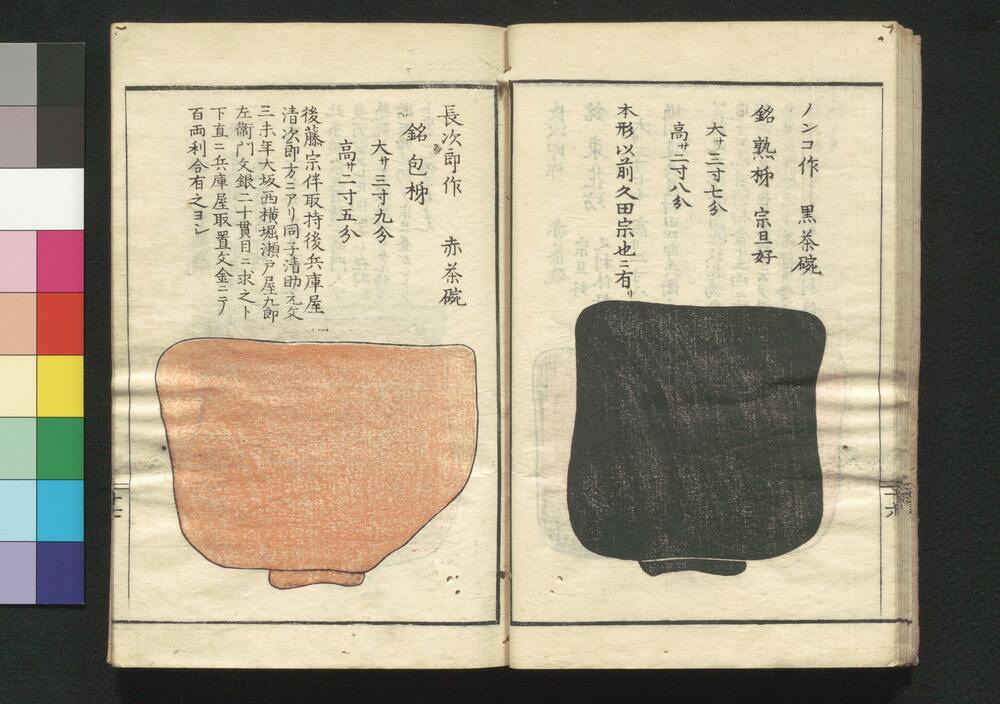 ノンコ作　黒茶碗
銘　熟柹　宗旦好
大サ三寸七分
高サ二寸八分
本形以前久田宗也ニ有リ
二十六
長次郎作　赤茶碗
銘　包柹
大サ三寸九分
高サ二寸五分
後藤宗伴取持後兵庫屋
清次郎方ニアリ同子清助元文
三未年大坂西横堀瀬戸屋九郎
左衞門文銀二十貫目ニ求之ト
下直ニ兵庫屋取置文金ニテ
百両利合有之ヨシ